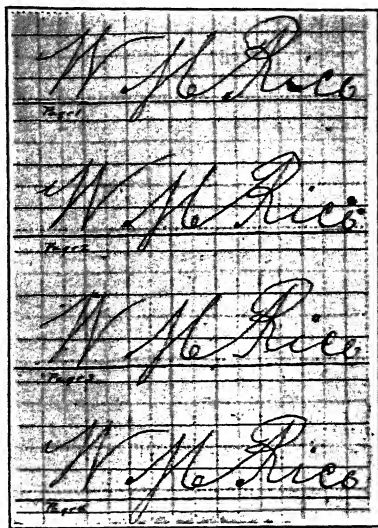 W M Rice
Page 1
W M Rice
Page 2
W M Rice
Page 3
W M Rice
Page